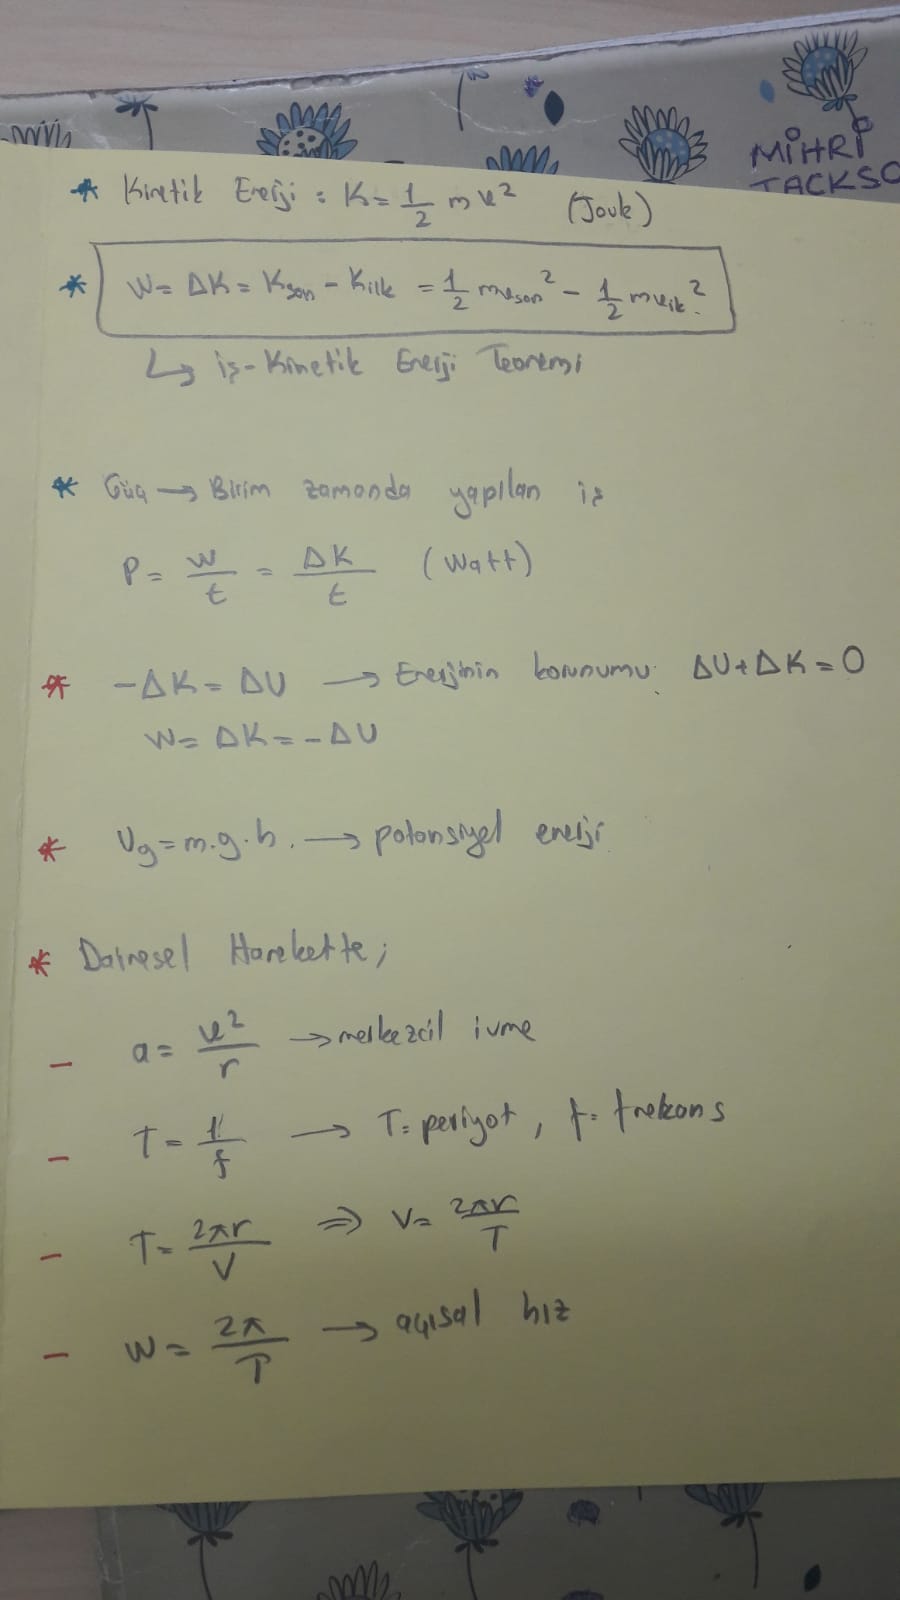 MİHRİ
TACKSO
* Kinetik Enerji : K = 1/2 m v² (Joule)
* W = ΔK = Kson - Kilk = 1/2 mvson² - 1/2 mvilk²
↳ iş-Kinetik Enerji Teoremi
* Güç → Birim zamanda yapılan iş
P = W/t = ΔK/t (Watt)
* -ΔK = ΔU → Enerjinin korunumu. ΔU + ΔK = 0
W = ΔK = -ΔU
* Ug = m.g.h. → potansiyel enerji
* Dairesel Harekette;
- a = v²/r → merkezcil ivme
- T = 1/f → T = periyot, f = frekans
- T = 2πr/V ⇒ V = 2πr/T
- W = 2π/T → açısal hız